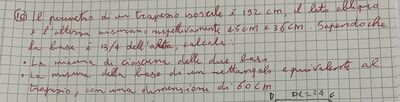 10) Il perimetro di un trapezio isoscele è 192 cm, il lato obliquo
e l'altezza misurano rispettivamente 45 cm e 36 cm. Sapendo che
la base è 13/4 dell'altra, calcola:
• La misura di ciascuna delle due basi
• La misura della base di un rettangolo equivalente al
trapezio, con una dimensione di 60 cm
D DC = 24 C